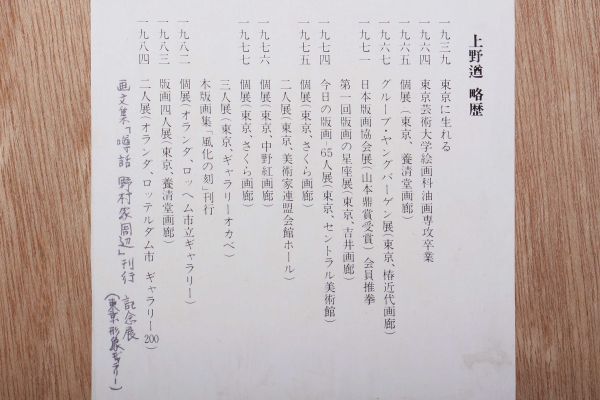 上野遒 略歴
一九三九 東京に生れる
一九六四 東京芸術大学絵画科油画専攻卒業
一九六五 個展(東京、養清堂画廊)
一九六七 グループ・ヤングバーゲン展(東京、椿近代画廊)
一九七一 日本版画協会展(山本鼎賞受賞) 会員推挙
第一回版画の星座展(東京、吉井画廊)
一九七四 今日の版画-65人展(東京、セントラル美術館)
一九七五 個展(東京、さくら画廊)
二人展(東京、美術家連盟会館ホール)
一九七六 個展(東京、中野紅画廊)
一九七七 個展(東京、さくら画廊)
三人展(東京、ギャラリーオカベ)
木版画集「風化の刻」刊行
一九八二 個展(オランダ、ロッヘム市立ギャラリー)
一九八三 版画四人展(東京、養清堂画廊)
一九八四 二人展(オランダ、ロッテルダム市 ギャラリー200)
画文集「噂話 野村家周辺」刊行 記念展
(東京形象ギャラリー)